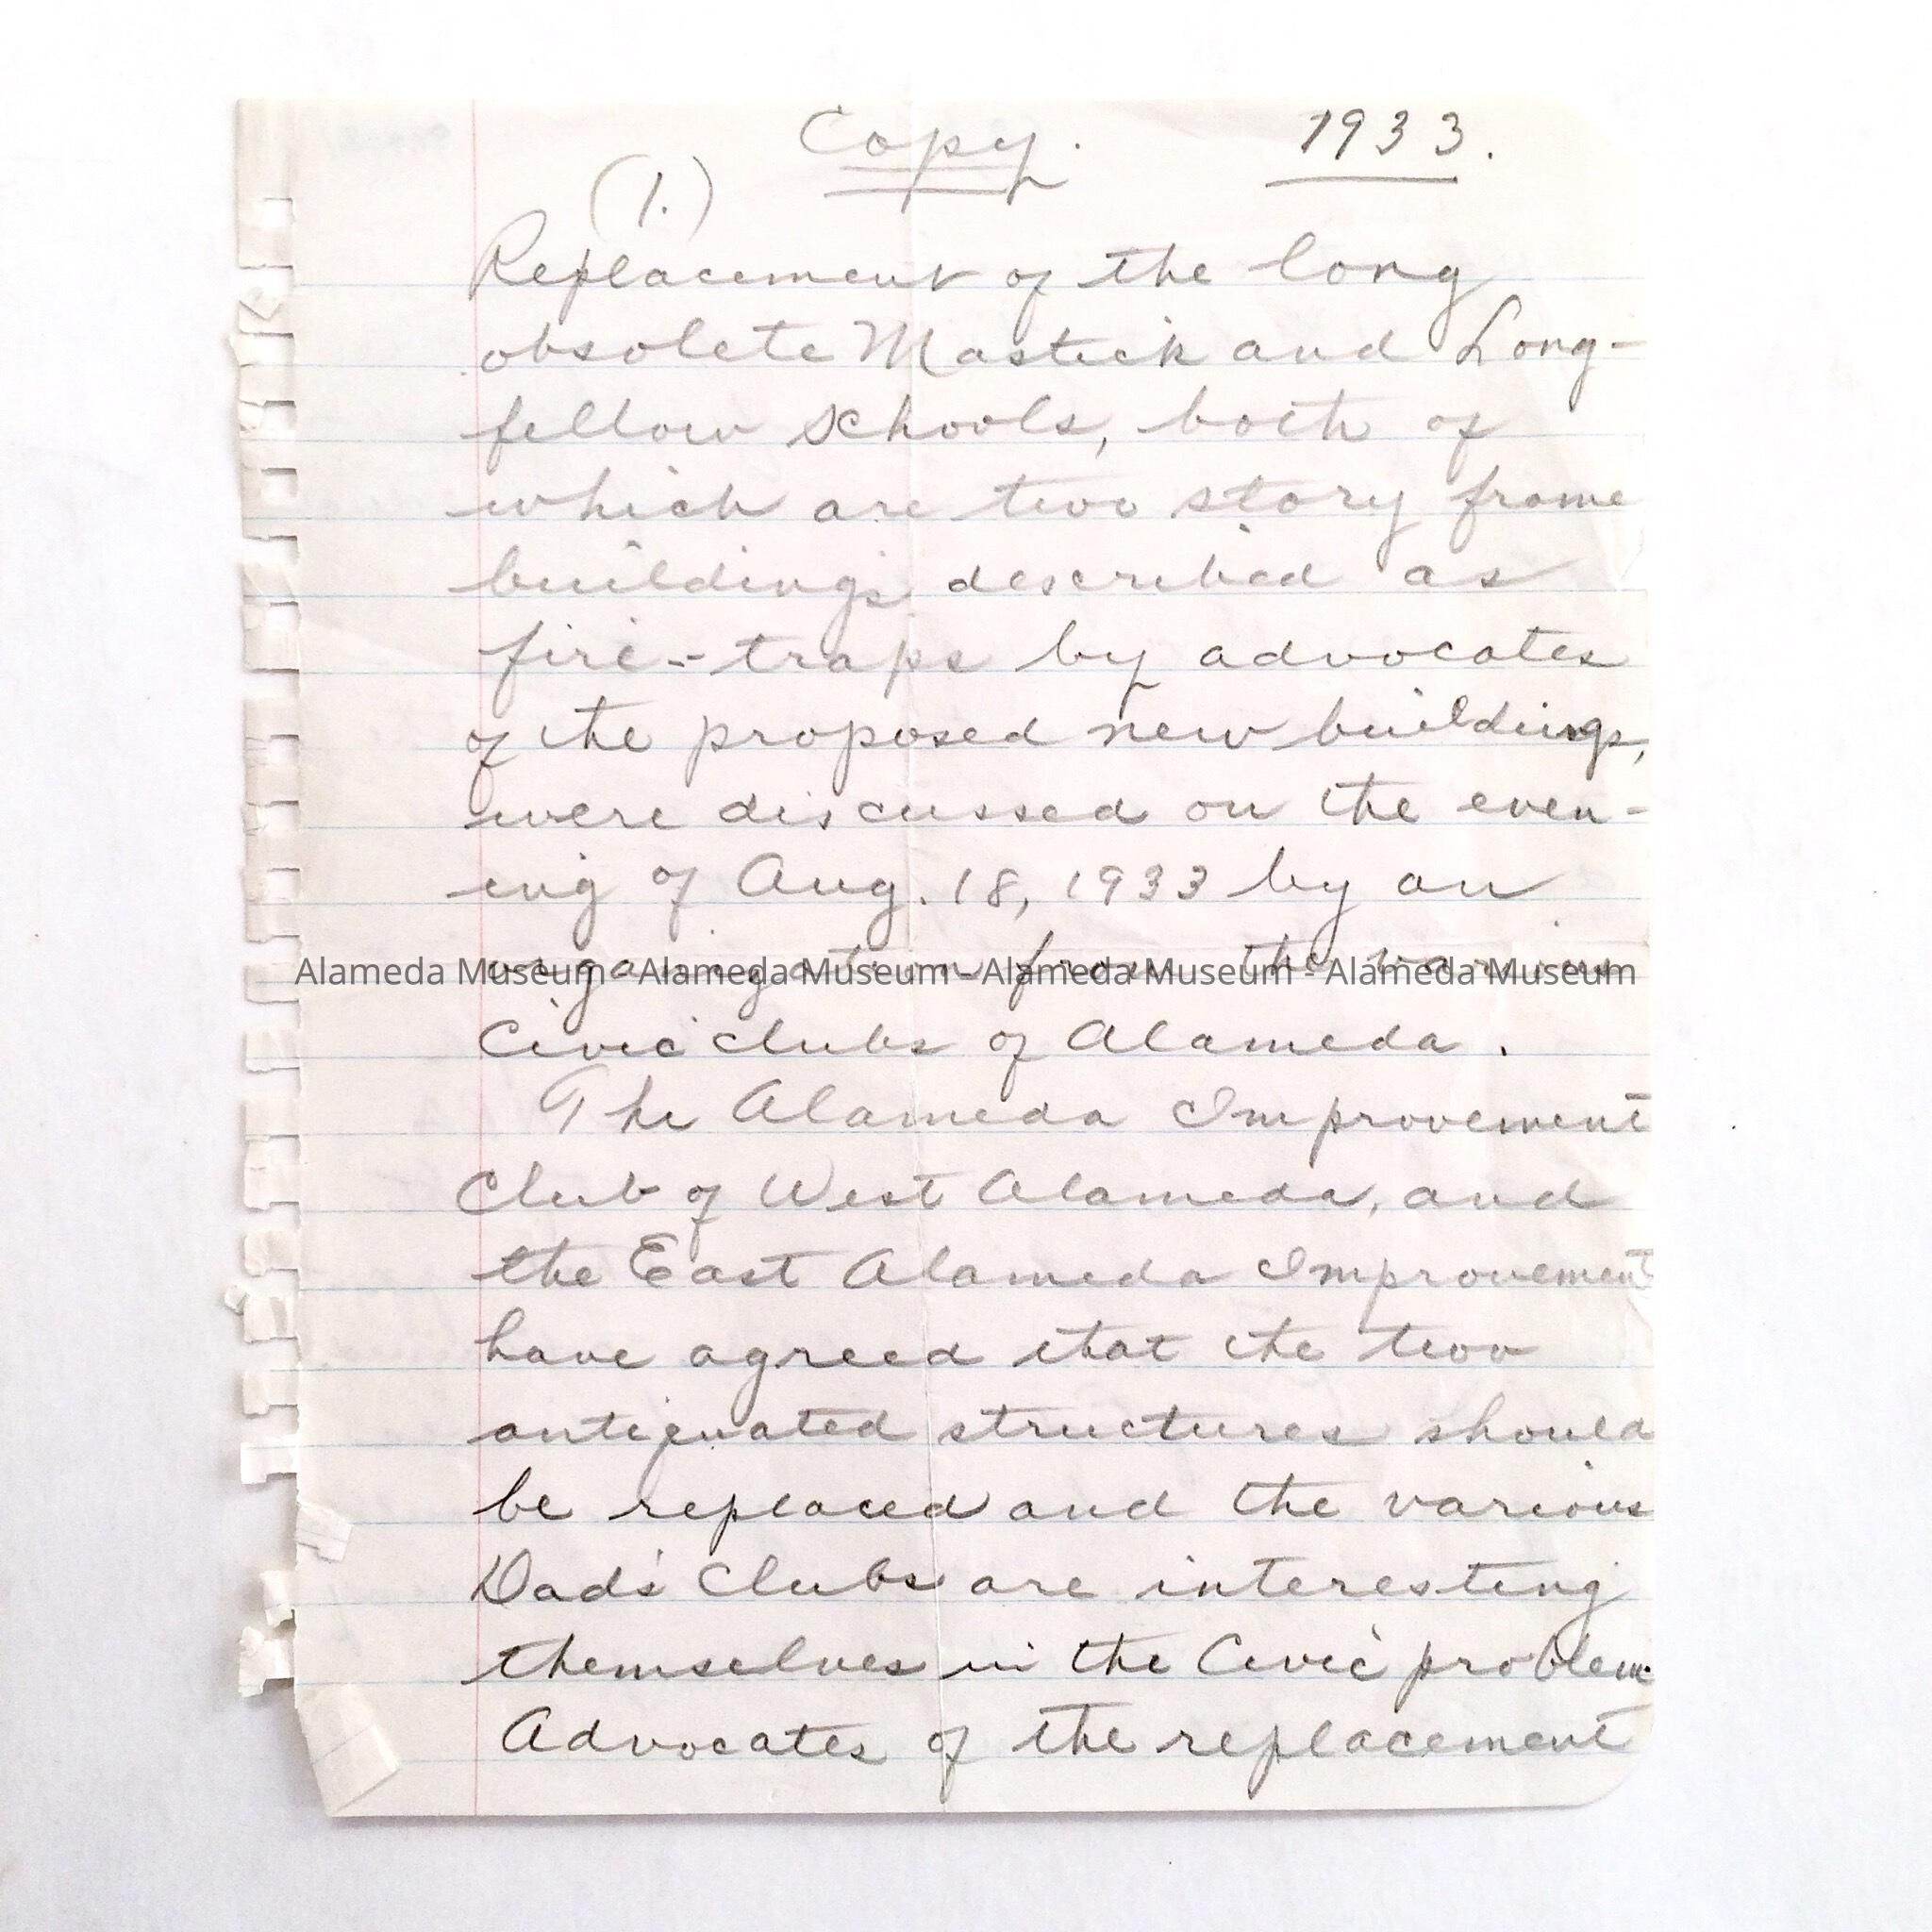 Copy. 1933.
(1.)
Replacement of the long
obsolete Mastick and Long-
fellow Schools, both of
which are two story frame
buildings described as
fire-traps by advocates
of the proposed new buildings,
were discussed on the even-
ing of Aug. 18, 1933 by an
organization from the various
Alameda Museum - Alameda Museum - Alameda Museum - Alameda Museum
Civic clubs of Alameda.
The Alameda Improvement
Club of West Alameda, and
the East Alameda Improvement
have agreed that the two
antiquated structures should
be replaced and the various
Dad's Clubs are interesting
themselves in the Civic problem
Advocates of the replacement